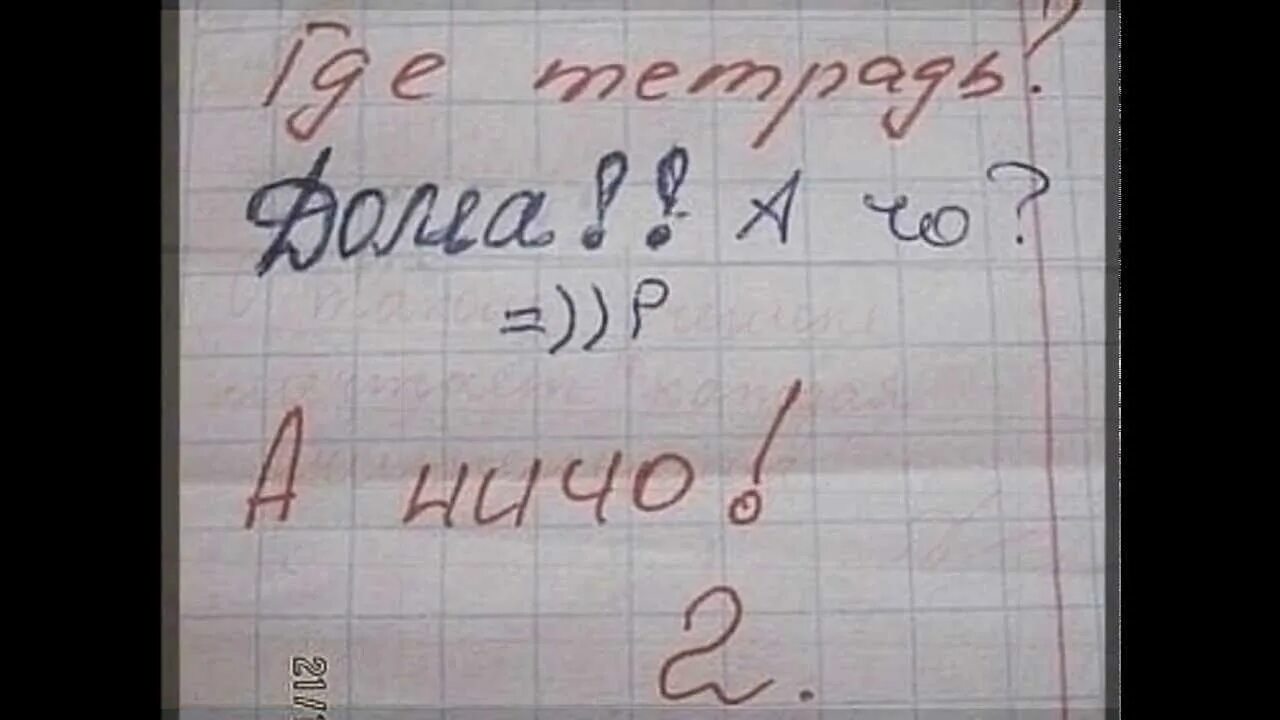 Где тетрадь?
Дома!! А чо?
=))Р
А ничо!
2.
21/